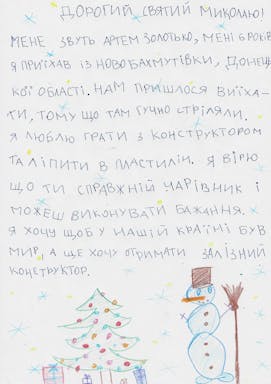 ДОРОГИЙ СВЯТИЙ МИКОЛАЮ!
МЕНЕ ЗВУТЬ АРТЕМ ЗОЛОТЬКО, МЕНІ 6 РОКІВ
Я ПРИЇХАВ ІЗ НОВОБАХМУТІВКИ, ДОНЕЦЬ
КОЇ ОБЛАСТІ. НАМ ПРИШЛОСЯ ВИЇХА-
ТИ, ТОМУ ЩО ТАМ ГУЧНО СТРІЛЯЛИ.
Я ЛЮБЛЮ ГРАТИ З КОНСТРУКТОРОМ
ТА ЛІПИТИ З ПЛАСТИЛІН. Я ВІРЮ
ЩО ТИ СПРАВЖНІЙ ЧАРІВНИК І
МОЖЕШ ВИКОНУВАТИ БАЖАННЯ.
Я ХОЧУ ЩОБ У НАШІЙ КРАЇНІ БУВ
МИР, А ЩЕ ХОЧУ ОТРИМАТИ ЗАЛІЗНИЙ
КОНСТРУКТОР.